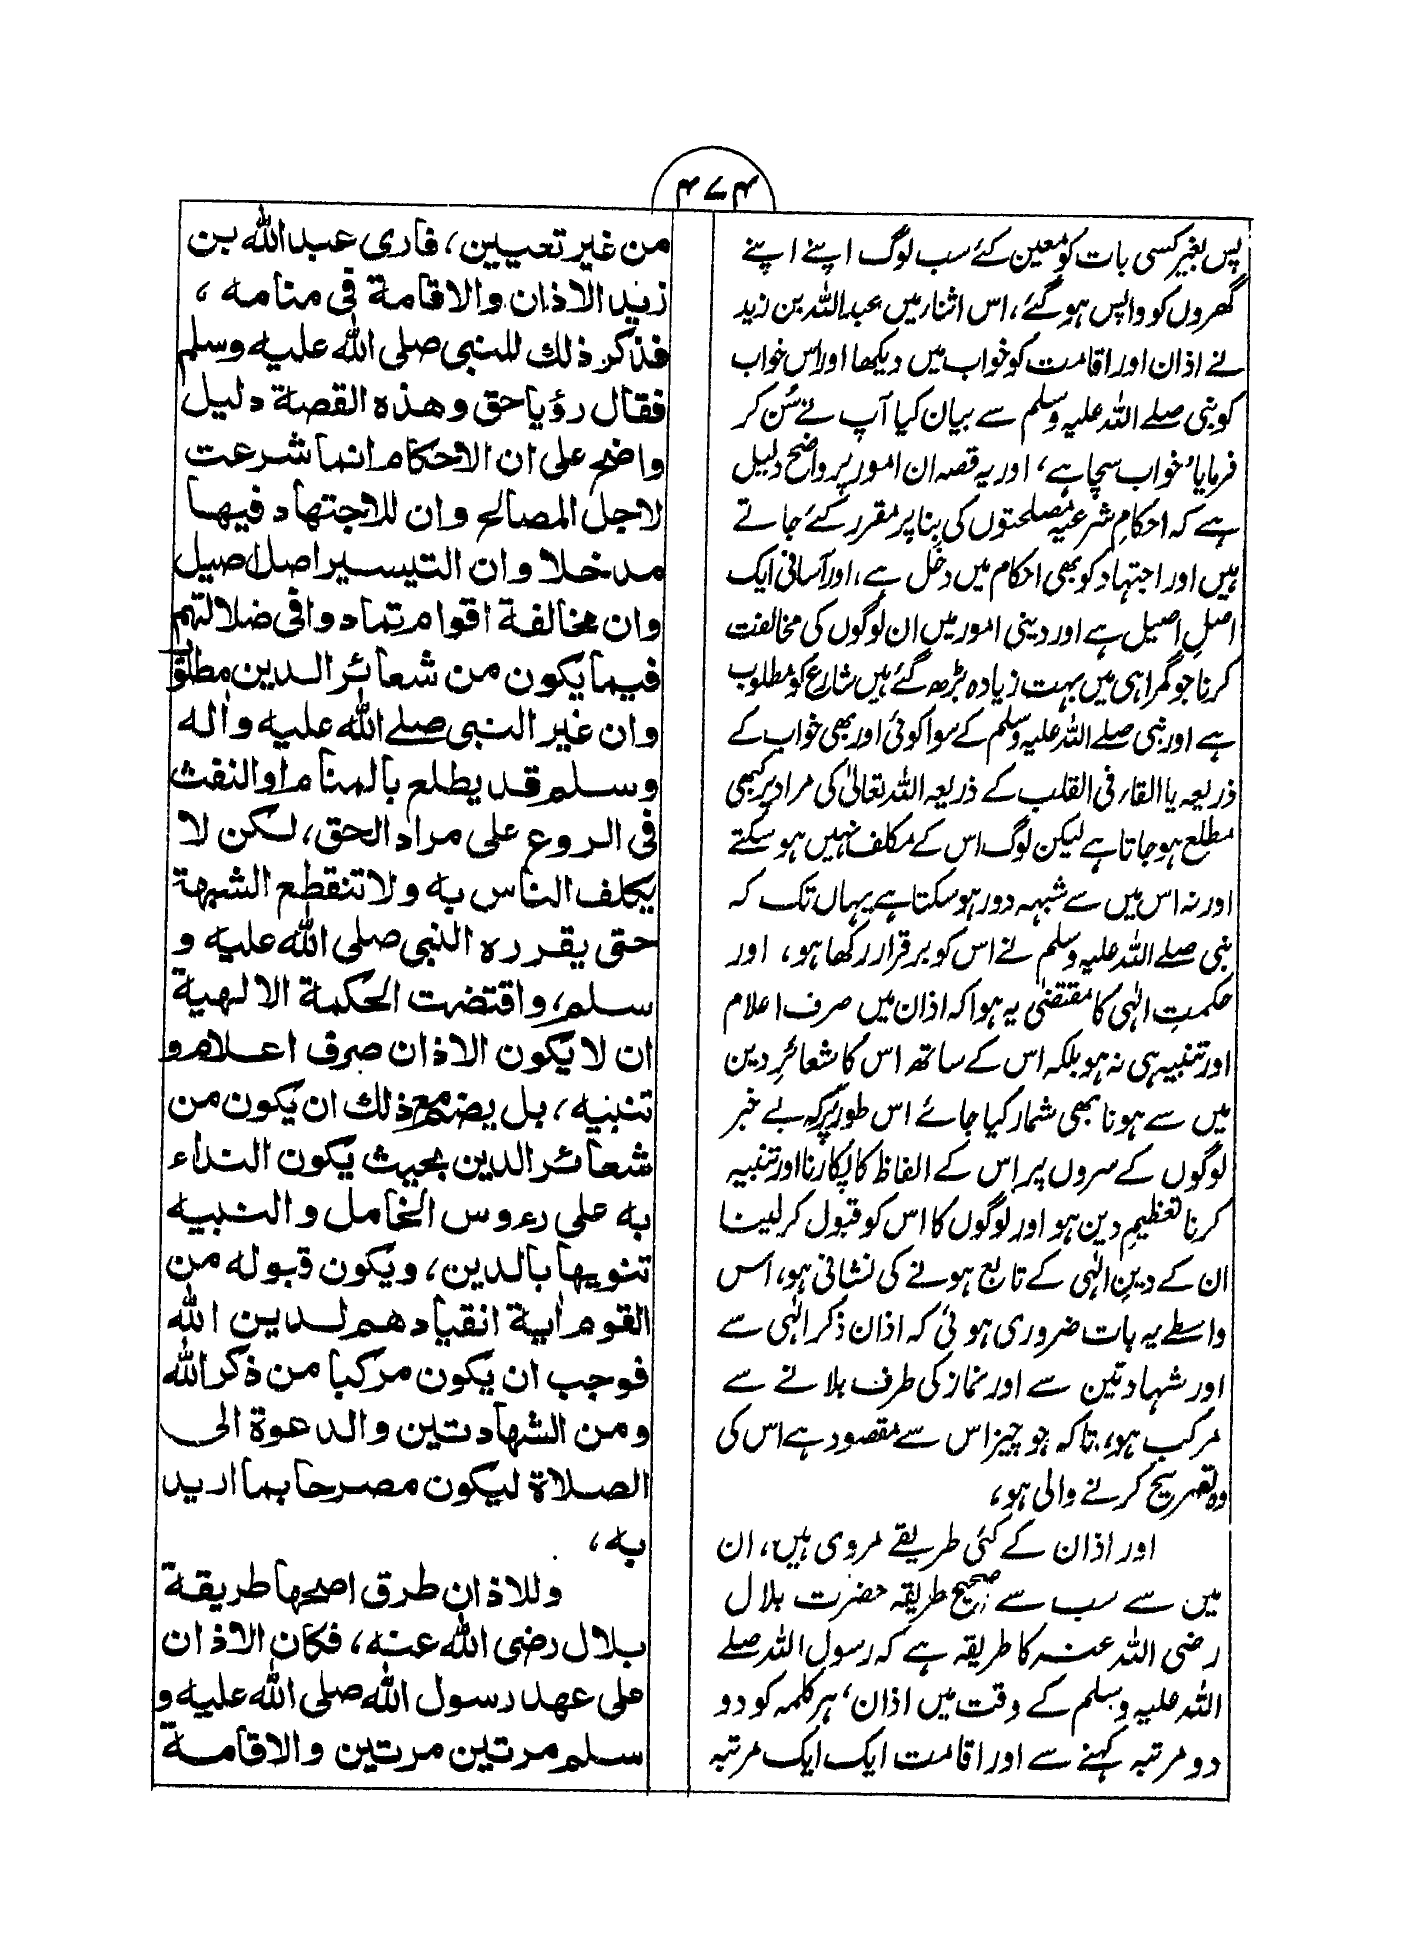 ۴۷۴
پس بغیر کسی بات کو معین کئے سب لوگ اپنے اپنے
گھروں کو واپس ہو گئے، اس اثنار میں عبد اللہ بن زید
نے اذان اور اقامت کو خواب میں دیکھا اور اس خواب
کو نبی صلے اللہ علیہ وسلم سے بیان کیا آپ نے سُن کر
فرمایا ’خواب سچا ہے‘ اور یہ قصہ ان امور پر واضح دلیل
ہے کہ احکامِ شرعیہ مصلحتوں کی بنا پر مقرر کئے جاتے
ہیں اور اجتہاد کو بھی احکام میں دخل ہے، اور آسانی ایک
اصلِ اصیل ہے اور دینی امور میں ان لوگوں کی مخالفت
کرنا جو گمراہی میں بہت زیادہ بڑھ گئے ہیں شارع کو مطلوب
ہے اور نبی صلے اللہ علیہ وسلم کے سوا کوئی اور بھی خواب کے
ذریعہ یا القار فی القلب کے ذریعہ اللہ تعالیٰ کی مراد پر کبھی
مطلع ہو جاتا ہے لیکن لوگ اس کے مکلف نہیں ہو سکتے
اور نہ اس میں سے شبہہ دور ہو سکتا ہے یہاں تک کہ
نبی صلے اللہ علیہ وسلم نے اس کو برقرار رکھا ہو، اور
حکمتِ الٰہی کا مقتضیٰ یہ ہوا کہ اذان میں صرف اعلام
اور تنبیہ ہی نہ ہو بلکہ اس کے ساتھ اس کا شعائرِ دین
میں سے ہونا بھی شمار کیا جائے اس طور پر کہ بے خبر
لوگوں کے سروں پر اس کے الفاظ کا پکارنا اور تنبیہ
کرنا تعظیمِ دین ہو اور لوگوں کا اس کو قبول کر لینا
ان کے دینِ الٰہی کے تابع ہونے کی نشانی ہو، اس
واسطے یہ بات ضروری ہوئی کہ اذان ذکر الٰہی سے
اور شہادتین سے اور نماز کی طرف بلانے سے
مرکب ہو، تاکہ جو چیز اس سے مقصود ہے اس کی
وہ تصریح کرنے والی ہو،
اور اذان کے کئی طریقے مروی ہیں، ان
میں سے سب سے صحیح طریقہ حضرت بلال
رضی اللہ عنہ کا طریقہ ہے کہ رسول اللہ صلے
اللہ علیہ وسلم کے وقت میں اذان، ہر کلمہ کو دو
دو مرتبہ کہنے سے اور اقامت ایک ایک مرتبہ
من غير تعيين، فأرى عبد الله بن
زيد الاذان والاقامة فى منامه،
فذكر ذلك للنبى صلى الله عليه وسلم
فقال رؤيا حق وهذه القصة دليل
واضح على ان الاحكام انما شرعت
لاجل المصالح وان للاجتهاد فيها
مدخلا وان التيسير اصل اصيل
وان مخالفة اقوام تمادوا فى ضلالتهم
فيما يكون من شعائر الدين مطلوب
وان غير النبى صلے الله عليه واٰله
وسلم قد يطلع بالمنام او النفث
فى الروع على مراد الحق، لكن لا
يكلف الناس به ولا تنقطع الشبهة
حتى يقرره النبى صلى الله عليه و
سلم، واقتضت الحكمة الالهية
ان لا يكون الاذان صرف اعلام و
تنبيه، بل يضم مع ذلك ان يكون من
شعائر الدين بحيث يكون النداء
به على رءوس الخامل والنبيه
تنويها بالدين، ويكون قبوله من
القوم اٰية انقيادهم لدين الله
فوجب ان يكون مركبا من ذكر الله
ومن الشهادتين والدعوة الى
الصلاة ليكون مصرحا بما اريد
به،
وللاذان طرق اصحها طريقة
بلال رضى الله عنه، فكان الاذان
على عهد رسول الله صلى الله عليه و
سلم مرتين مرتين والاقامة